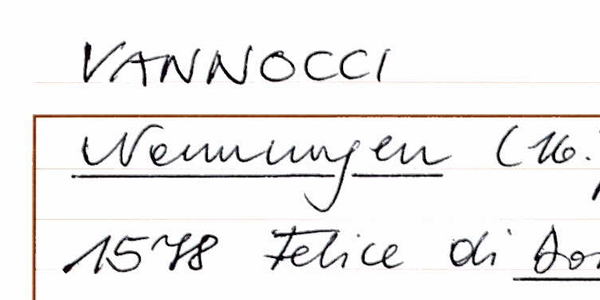 VANNOCCI
Nennungen (16.
1578 Felice di